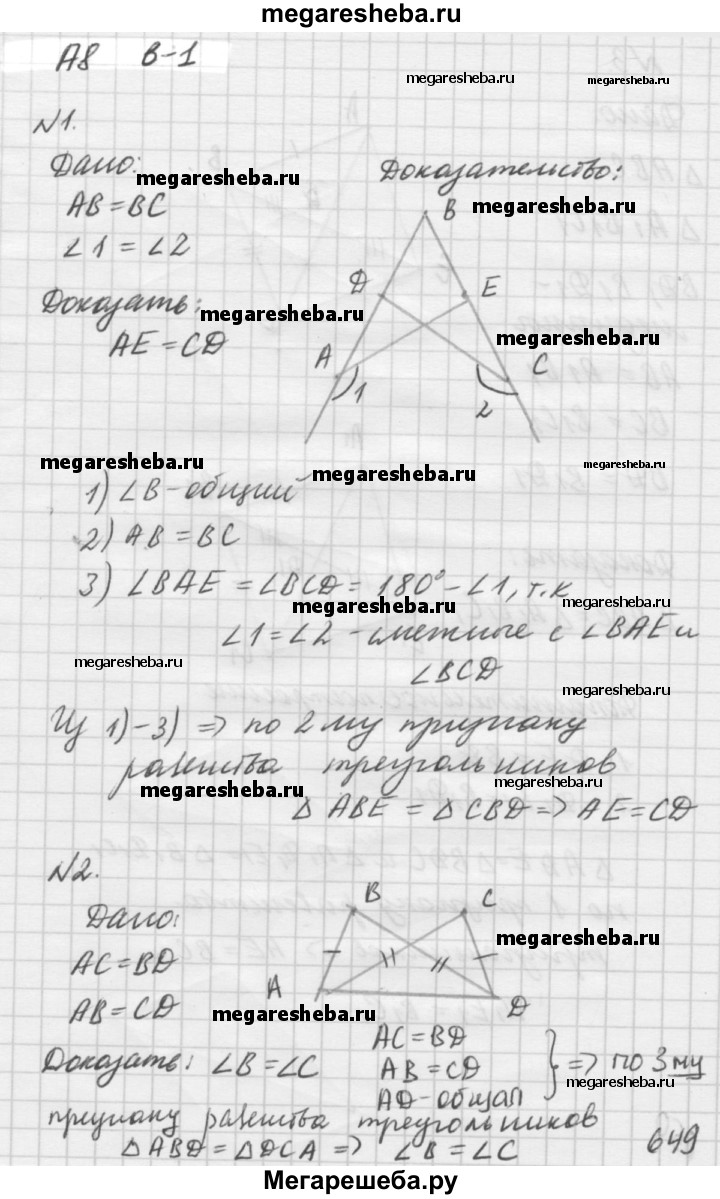 megaresheba.ru
А8 В-1
megaresheba.ru megaresheba.ru
N1.
Дано:
Доказательство:
megaresheba.ru
AB = BC
megaresheba.ru
∠1 = ∠2
B
D E
Доказать:
megaresheba.ru
AE = CD
megaresheba.ru
A C
1 2
megaresheba.ru megaresheba.ru megaresheba.ru
1) ∠B - общий
2) AB = BC
3) ∠BAE = ∠BCD = 180° - ∠1, т.к
megaresheba.ru megaresheba.ru
∠1 = ∠2 - смежные с ∠BAE и
megaresheba.ru
∠BCD
megaresheba.ru
Из 1)-3) => по 2му признаку
равенства треугольников
megaresheba.ru megaresheba.ru
Δ ABE = Δ CBD => AE = CD
N2.
Дано:
B C
megaresheba.ru
AC = BD
A D
AB = CD
megaresheba.ru
Доказать: ∠B = ∠C
AC = BD
AB = CD
AD - общая
} => по 3му
megaresheba.ru
признаку равенства треугольников
Δ ABD = Δ DCA => ∠B = ∠C
649
Мегарешеба.ру